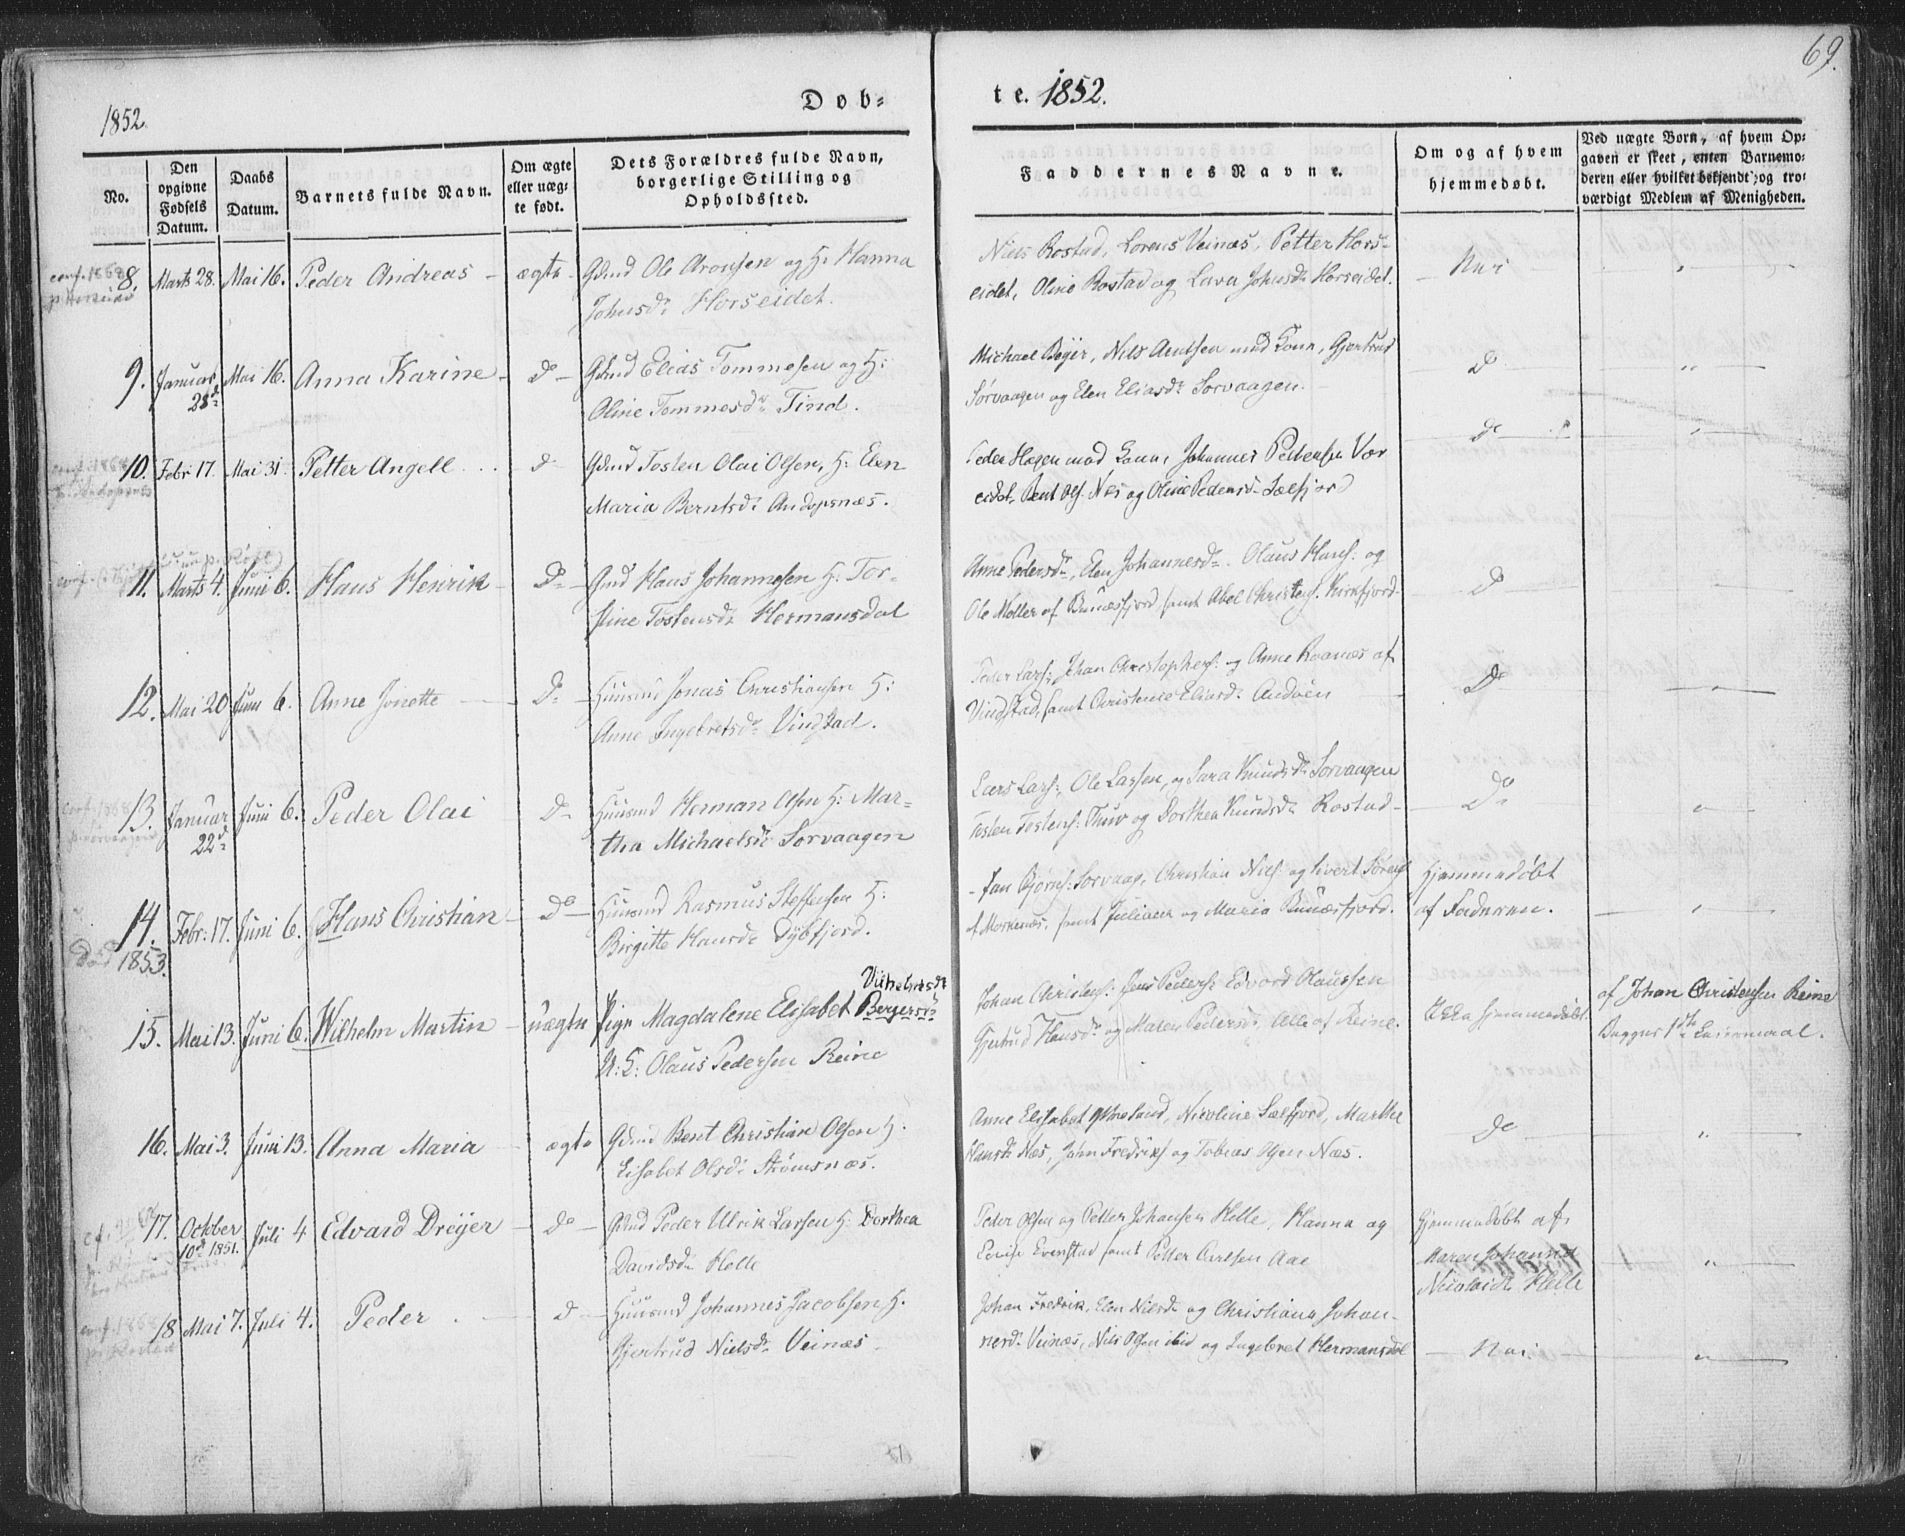 69.
1852.
Døb-
te. 1852.
No.
Den opgivne Fødsels Datum.
Daabs Datum.
Barnets fulde Navn.
Om ægte eller uægte født.
Dets Forældres fulde Navn, borgerlige Stilling og Opholdssted.
Faddernes Navne.
Om og af hvem hjemmedøbt.
Ved uægte Børn, af hvem Opgaven er skeet, enten Barnemoderen eller hvilket bekjendt og troværdigt Medlem af Menigheden.
conf. 1868
8. Marts 28. Mai 16. Peder Andreas - ægte - Gdmd Ole Aronsen og H: Hanna
Johnsdr Horseidet.
Niels Rostad, Lorens Veinæs, Petter Hors-
eidet, Oline Rostad og Lava Johnsdr Horseidet.
Nei
9. Januar 28d Mai 16. Anna Karine - Do - Gdmd Elias Tommesen og H:
Oline Tommesdr Tind.
Michael Beyer, Nils Arntsen med Kone, Gjertrud
Sørvaagen og Elen Eliasdr Sørvaagen.
Do
10. Febr: 17. Mai 31. Petter Angell . . . Do Gdmd Tosten Olai Olsen, H: Elen
Maria Berntsdr Andopsnæs.
Peder Hagen med Kone, Johannes Pettersen Vor
eidet, Bent Ols: Nes og Oline Pedersdr Sælfjord
Do
11. Marts 4. Juni 6. Hans Henrik - Do - Gmd Hans Johannesen H: Tor-
stine Tostensdr Hermansdal
Anne Pedersdr, Elen Johannesdr. Olaus Hans: og
Ole Møller af Bunæsfjord samt Abel Christens. Kirkfjord
Do
12. Mai 20 Juni 6. Anne Jonette - Do - Huusmd Jonas Christiansen H:
Anne Ingebretsdr Vindstad.
Peder Lars:, Johan Christophers: og Anne Roanæs af
Vindstad, samt Christense Eliasdr Andøen
Do
13. Januar 22d Juni 6. Peder Olai Do Huusmd Herman Olsen H: Mar-
tha Michaelsdr Sørvaagen
Lars Lars:, Ole Larsen, og Sara Knudsdr Sørvaagen
Tosten Tostens: Thuv og Dorthea Knudsdr Rostad
Do
14. Febr: 17. Juni 6. Hans Christian - Do - Huusmd Rasmus Steffensen H:
Død 1853.
Birgitte Hansdr Dybfjord.
Jan Bjørns: Sørvaag, Christian Niels: og Sivert Sørens
af Morkenæs, samt Juliana og Maria Bunæsfjord.
Hjemmedøbt
af Faderen.
15. Mai 13. Juni 6. Wilhelm Martin - uægte Pige Magdalene Elisabet Bergersdr
Vilhelmsdr
U: F: Olaus Pedersen Reine
Johan Christens: Jens Peders: Edvard Olaussen
Gjertrud Hansdr og Maren Pedersdr, Alle af Reine.
Ikke hjemmedøbt.
af Johan Christensen Reine
Begges 1ste Leiermaal.
16. Mai 3. Juni 13. Anna Maria - ægte Gdmd Bent Christian Olsen H.
Elisabet Olsdr Strømsnæs.
Anne Elisabet , Nicoline Sælfjord, Marthe
Hansdr Næs, John Fredriks og Tobias Olsen Næs.
Do
17. October 10d 1851. Juli 4. Edvard Dreyer - Do - Gdmd Peder Ulrik Larsen H: Dorthea
Davidsdr Helle
Peder Olsen og Petter Johansen Helle, Hanna og
Evenstad samt Petter Carlsen Aae
Hjemmedøbt af
Maren Johanna
Nicolaidr Helle
conf. 1868
18 Mai 7. Juli 4. Peder . Do Huusmd Johannes Jacobsen H.
Gjertrud Nielsdr Veinæs.
Johan Fredrik, Elen Nielsdr og Christiana Johan-
nesdr Veinæs, Nils Olsen ibid og Ingebret Hermansdal
Nei.